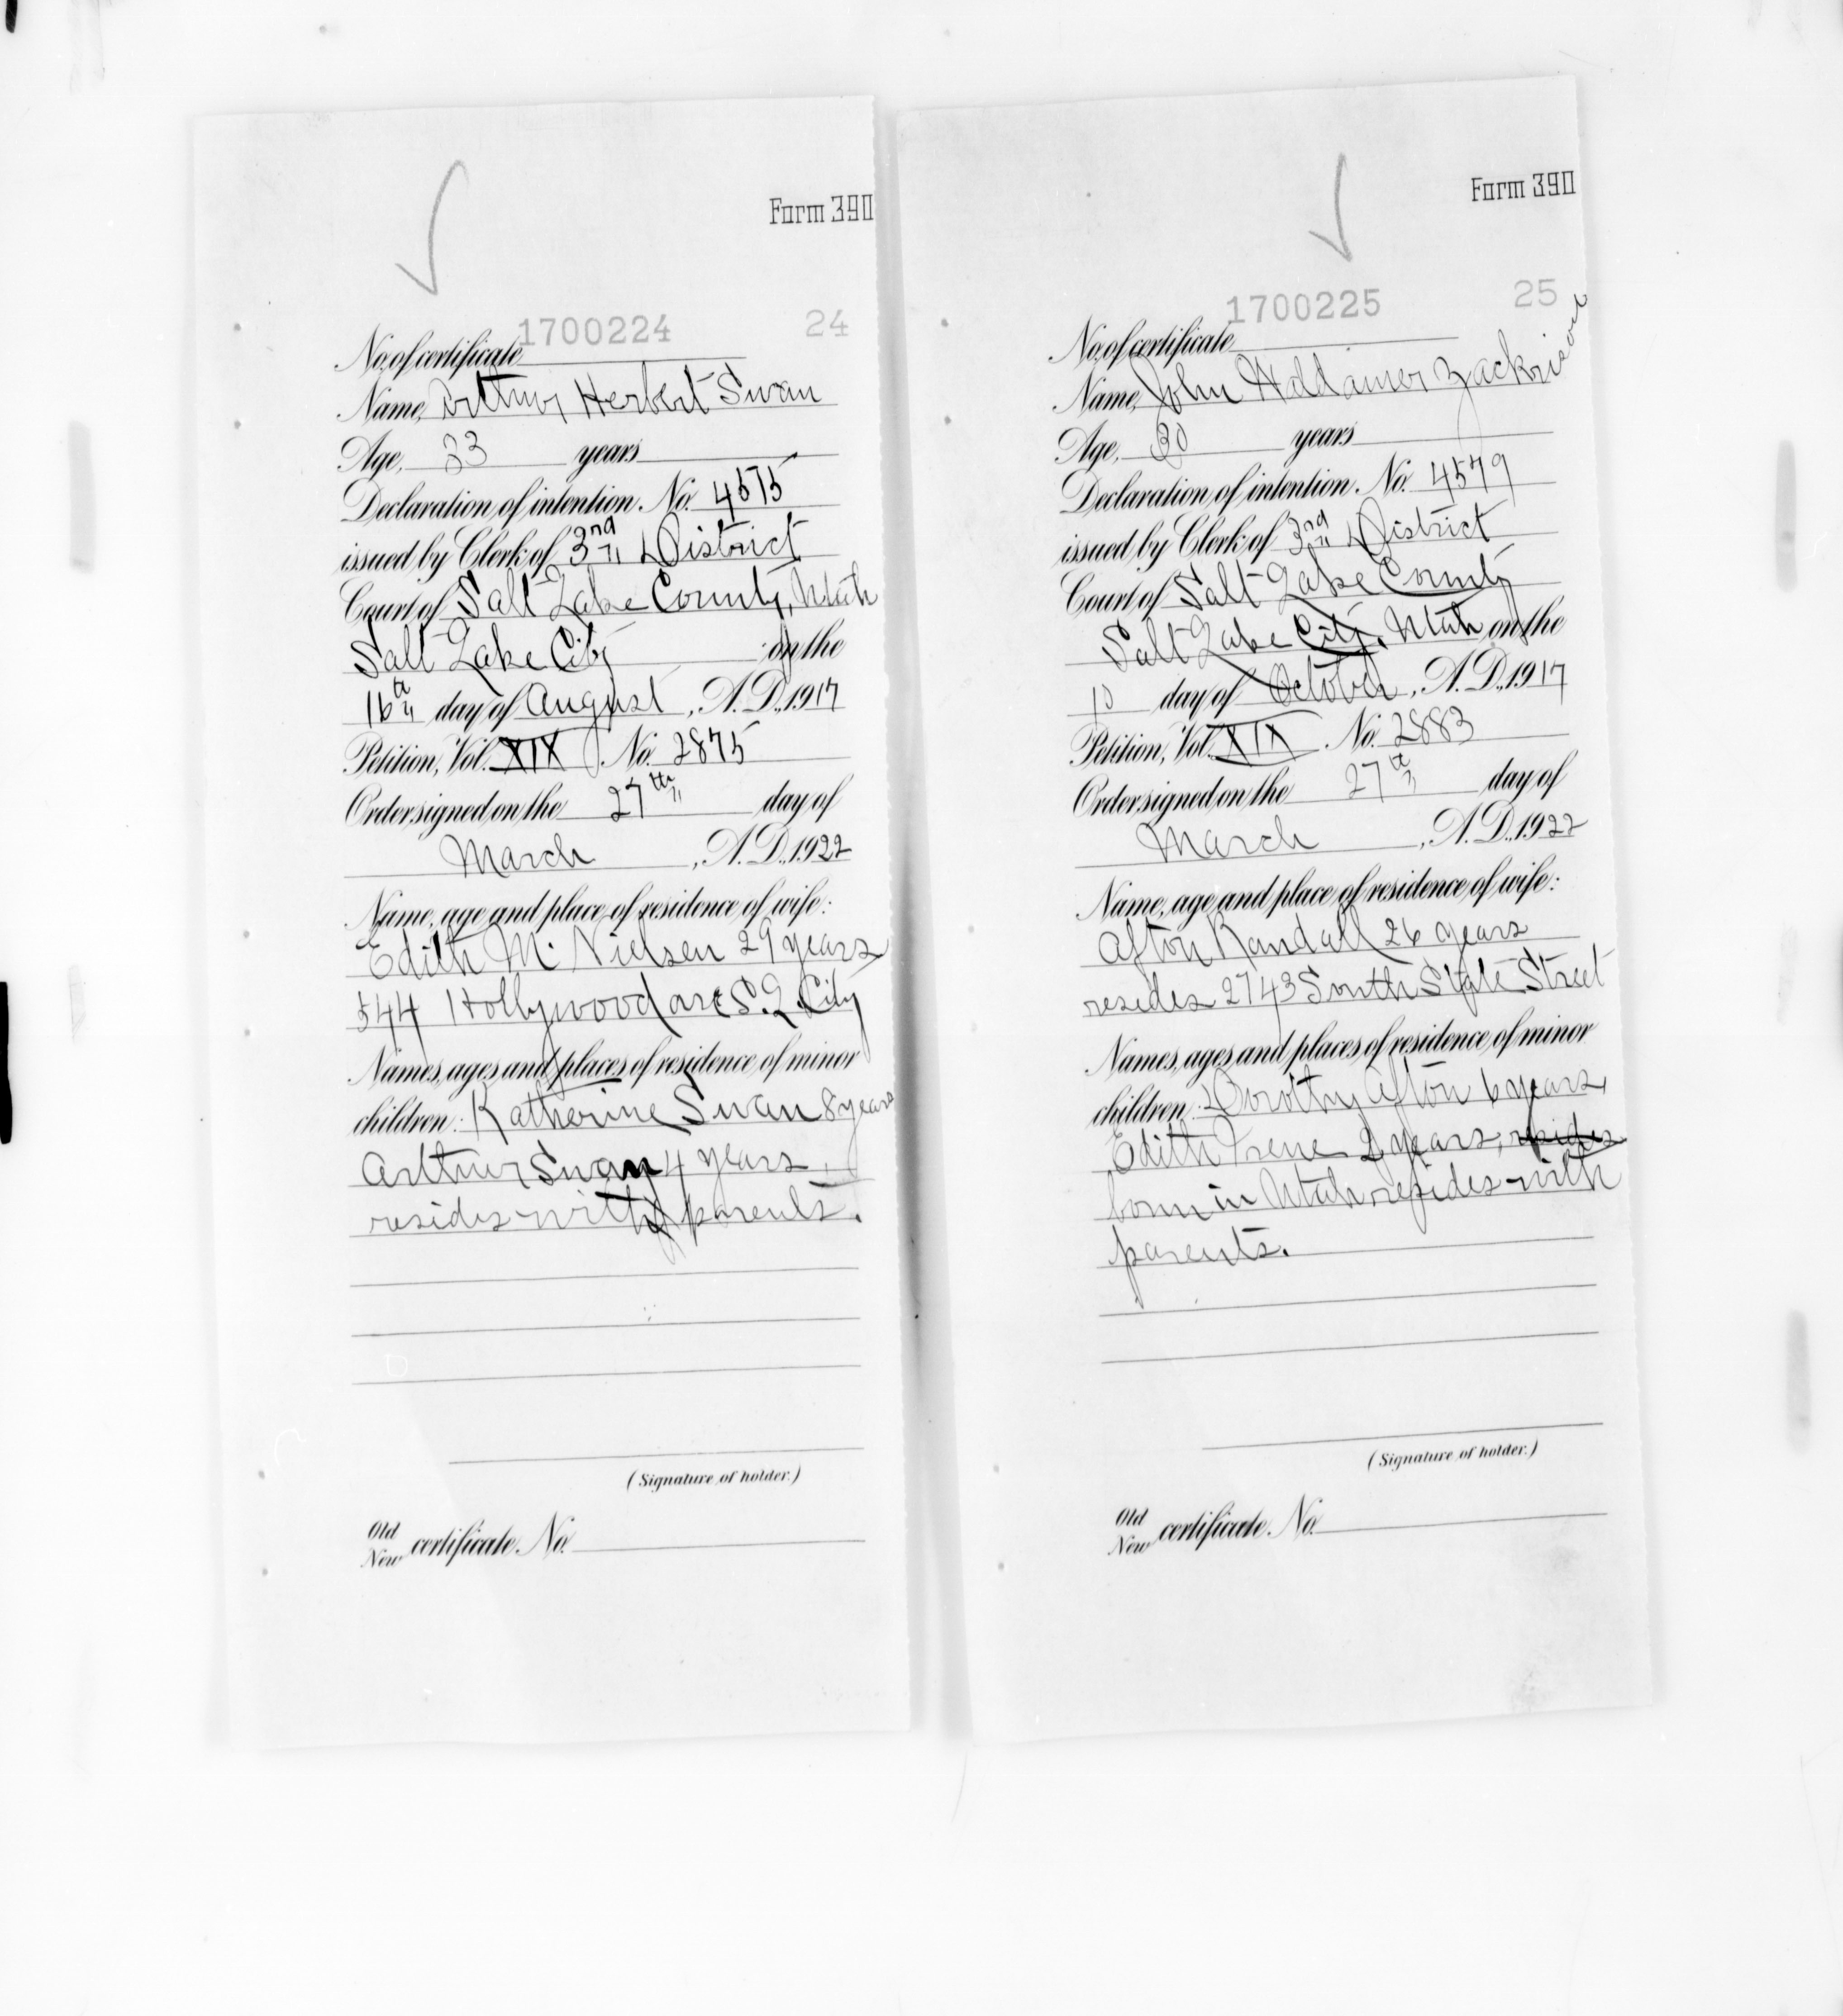 Form 390
1700224 24
No. of certificate
Name, Arthur Herbert Swan
Age, 33 years
Declaration of intention. No. 4575
issued by Clerk of 3rd District
Court of Salt Lake County, Utah
Salt Lake City on the
16th day of August, A.D., 1917
Petition, Vol. XIX No. 2875
Order signed on the 27th day of
March, A.D., 1922
Name, age and place of residence of wife:
Edith M. Nielsen 29 years
544 Hollywood ave S. L. City
Names, ages and places of residence of minor
children: Katherine Swan 8 years
Arthur Swan 4 years,
resides with parents.
(Signature of holder.)
Old
New certificate No.
Form 390
1700225 25
No. of certificate
Name, John Zackrison
Age, 30 years
Declaration of intention. No. 4579
issued by Clerk of 3rd District
Court of Salt Lake County
Salt Lake City, Utah on the
10 day of October, A.D., 1917
Petition, Vol. XIX No. 2883
Order signed on the 27th day of
March, A.D., 1922
Name, age and place of residence of wife:
Afton Randall 26 years
resides 2743 South State Street
Names, ages and places of residence of minor
children: Dorothy Afton 6 years,
Edith Irene 2 years, resides
born in Utah resides with
parents.
(Signature of holder.)
Old
New certificate No.